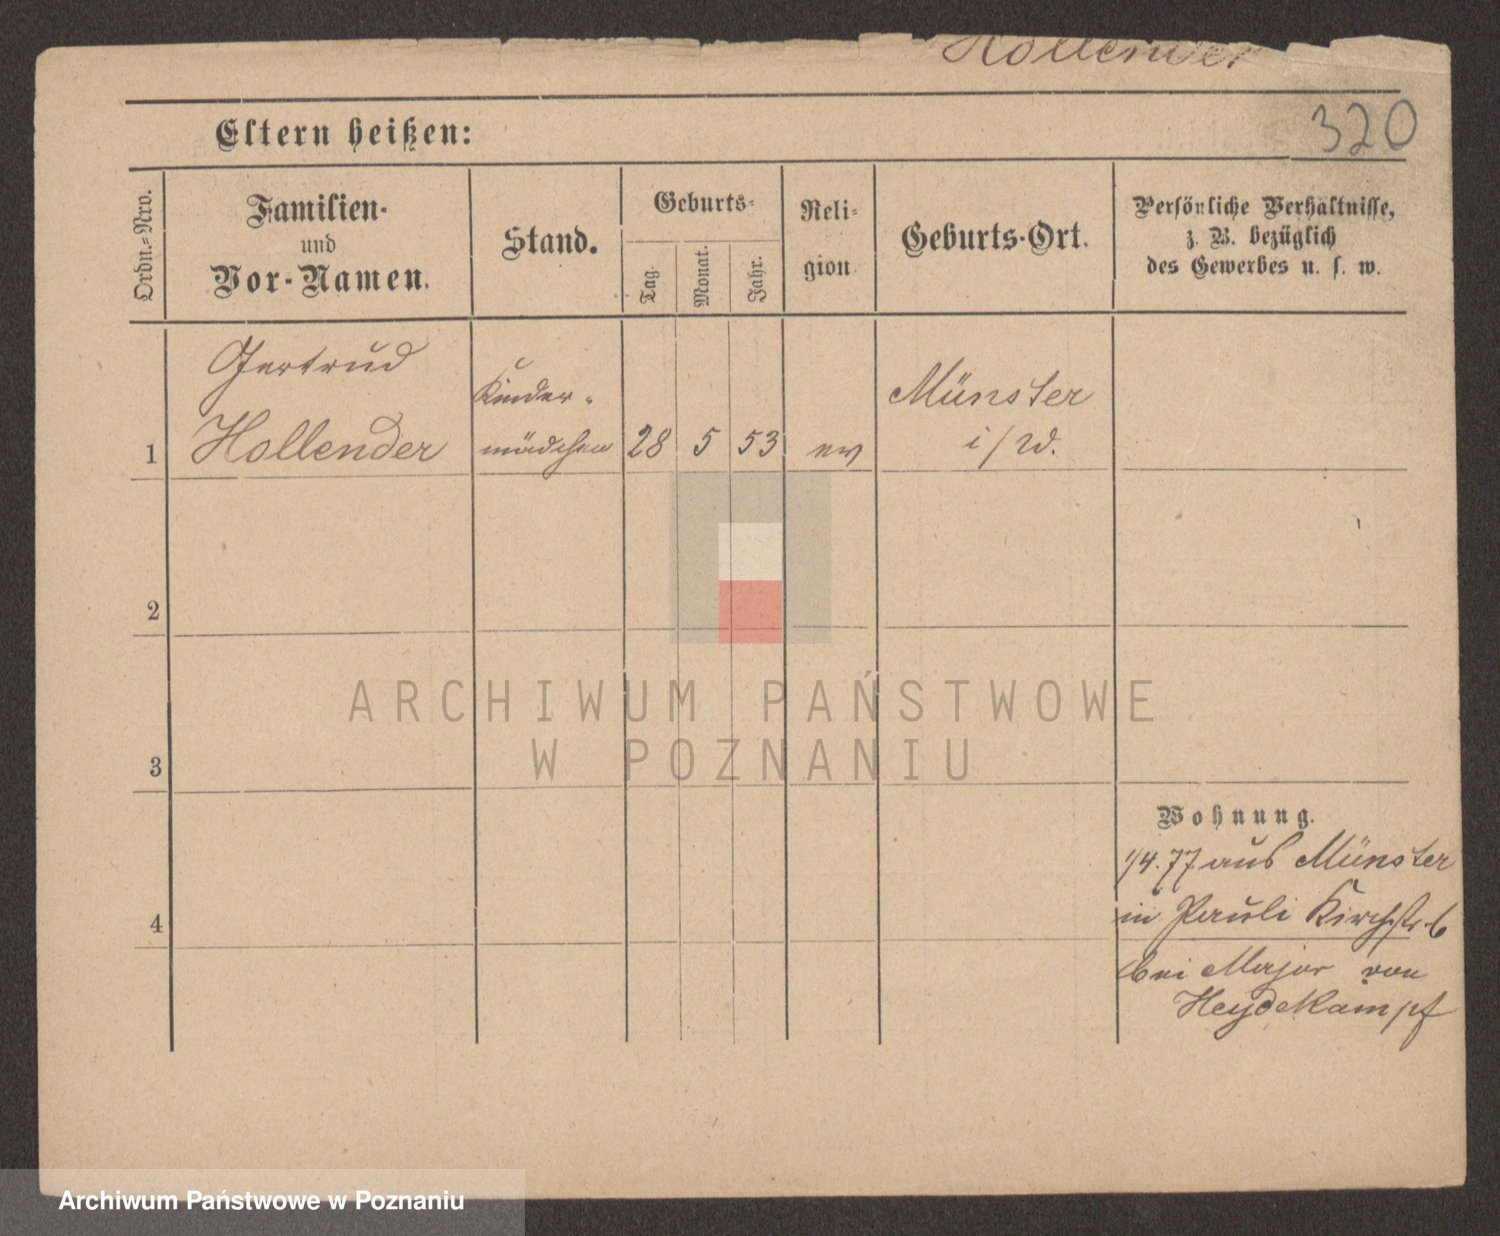 Hollender
320
Eltern heißen:
Ordn.-Nro.
Familien-
und
Vor-Namen.
Stand.
Geburts-
Tag.
Monat.
Jahr.
Reli-
gion
Geburts-Ort.
Persönliche Verhältnisse,
z. B. bezüglich
des Gewerbes u. s. w.
1
Gertrud
Hollender
Kinder-
mädchen
28
5
53
ev
Münster
i/W.
2
3
4
Wohnung.
1/4.77 aus Münster
in Pauli Kirchstr. 6
bei Major von
Heydekampf
ARCHIWUM PAŃSTWOWE
W POZNANIU
Archiwum Państwowe w Poznaniu